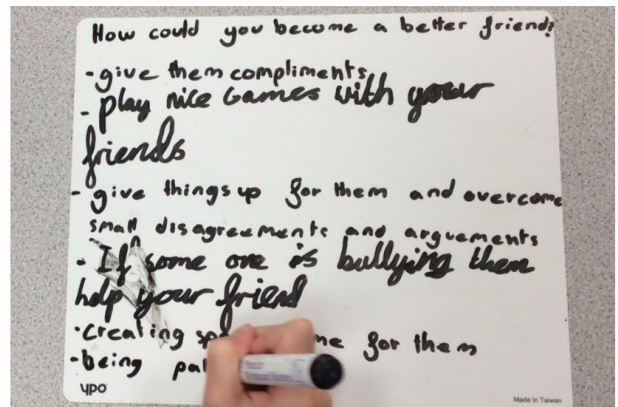 How could you become a better friend?
- give them compliments
- play nice Games with your
friends
- give things up for them and overcome
small disagreements and arguements
- If some one is bullying them
help your friend
• Creating for them
• being
ypo
Made In Taiwan